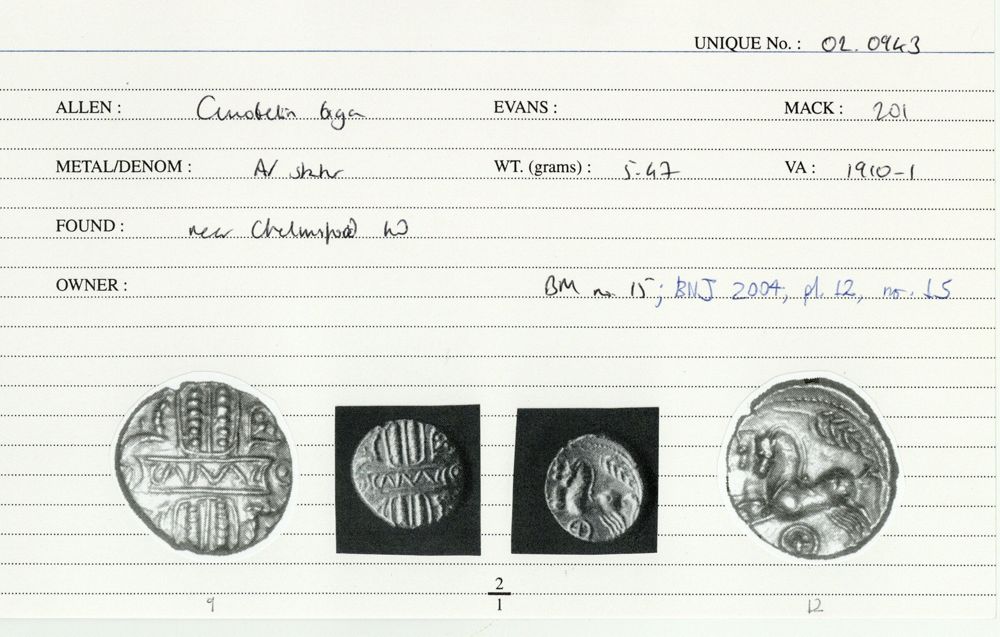 UNIQUE No. : 02. 0943
ALLEN : Cunobelin biga EVANS : MACK : 201
METAL/DENOM : AV stater WT. (grams) : 5.47 VA : 1910-1
FOUND : near Chelmsford
OWNER : BM no. 15; BNJ 2004, pl. 12, no. 15
CAMVL
2
1
9 12